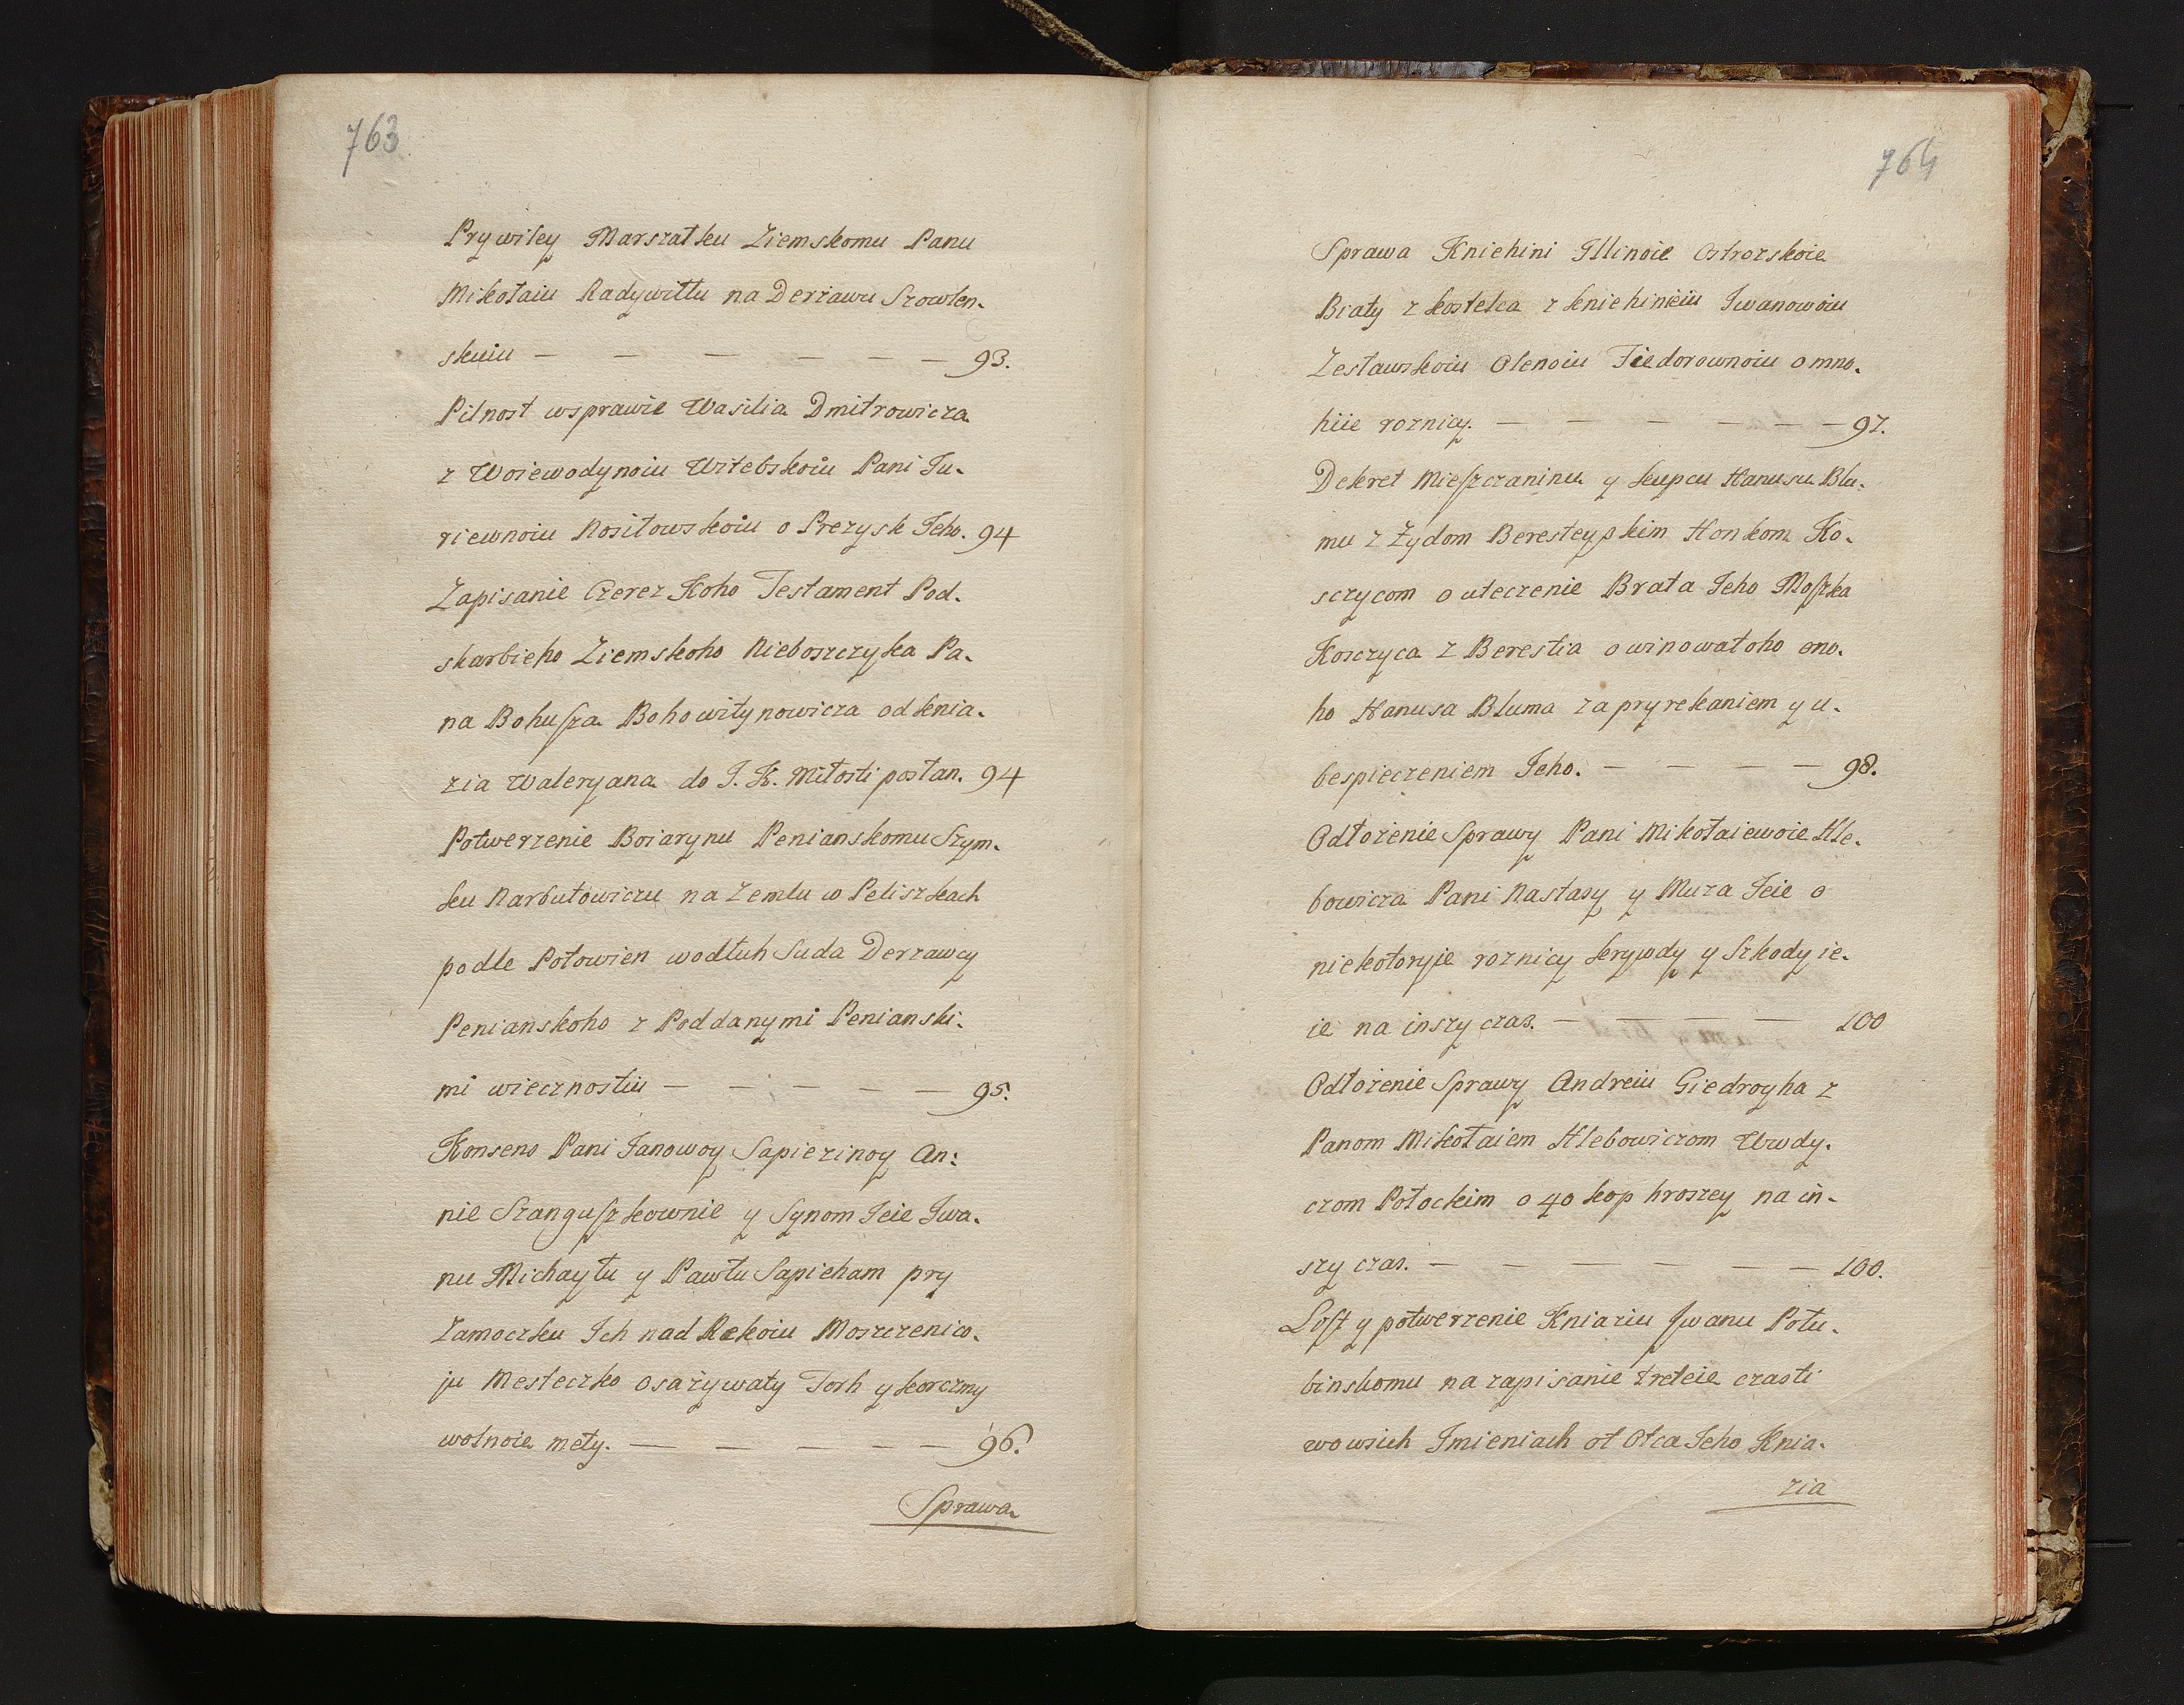 763
Prywiley Marszałku Ziemskomu Panu
Mikołaiu Radywiłłu na Derżawu Szowlen-
skuiu — — — — — — 93.
Pilnost wsprawie Wasilia Dmitrowicza
z Woiewodynoiu Witebskoiu Pani Ju-
riewnoiu Nosiłowskoiu o Prezysk Jeho. 94
Zapisanie Czerez Koho Testament Pod-
skarbieho Ziemskoho Nieboszczyka Pa-
na Bohusza Bohowitynowicza od knia-
zia Waleryana do J. K. Miłosti posłan. 94
Potwerzenie Boiarynu Penianskomu Szym-
ku Narbutowiczu na Zemlu w Peliszkach
podle Połowien wodłuh Suda Derzawcy
Penianskoho z Poddanymi Penianski-
mi wiecznostiu — — — — — 95.
Konsens Pani Janowoy Sapiezinoy An-
nie Szanguszkownie y Synom Jeie Jwa-
nu Michayłu y Pawłu Sapieham pry
Zamoczku Jch nad Rekoiu Moszczenico-
ju Mesteczko osażywaty Torh y korczmy
wolnoie mety. — — — — — 96.
Sprawa
764
Sprawa Kniehini Illinoie Ostrozskoie
Biaty z kostelca z kniehinieiu Jwanowoiu
Zesławskoiu Olenoiu Fiedorownoiu o mno-
hiie roznicy. — — — — — — 97.
Dekret Mieszczaninu y kupcu Hanusu Blu-
mu z Żydom Beresteyskim Honkom Ko-
sczycom o uteczenie Brata Jeho Moszka
Kosczyca z Berestia o winowatoho ono-
ho Hanusa Bluma za pryrekaniem y u-
bespieczeniem Jeho. — — — — 98.
Odłożenie Sprawy Pani Mikołaiewoie Hle-
bowicza Pani Nastasy y Muza Jeie o
niekotoryje roznicy krywdy y Szkody ie-
ie na inszy czas. — — — — 100
Odłożenie Sprawy Andreiu Giedroyha z
Panom Mikołaiem Hlebowiczom Wwdy-
czom Połockim o 40 kop hroszey na in-
szy czas. — — — — — — 100.
List y potwerzenie Kniaziu Jwanu Połu-
binskomu na zapisanie treteie czasti
wo wsich Jmieniach ot Otca Jeho Knia-
zia